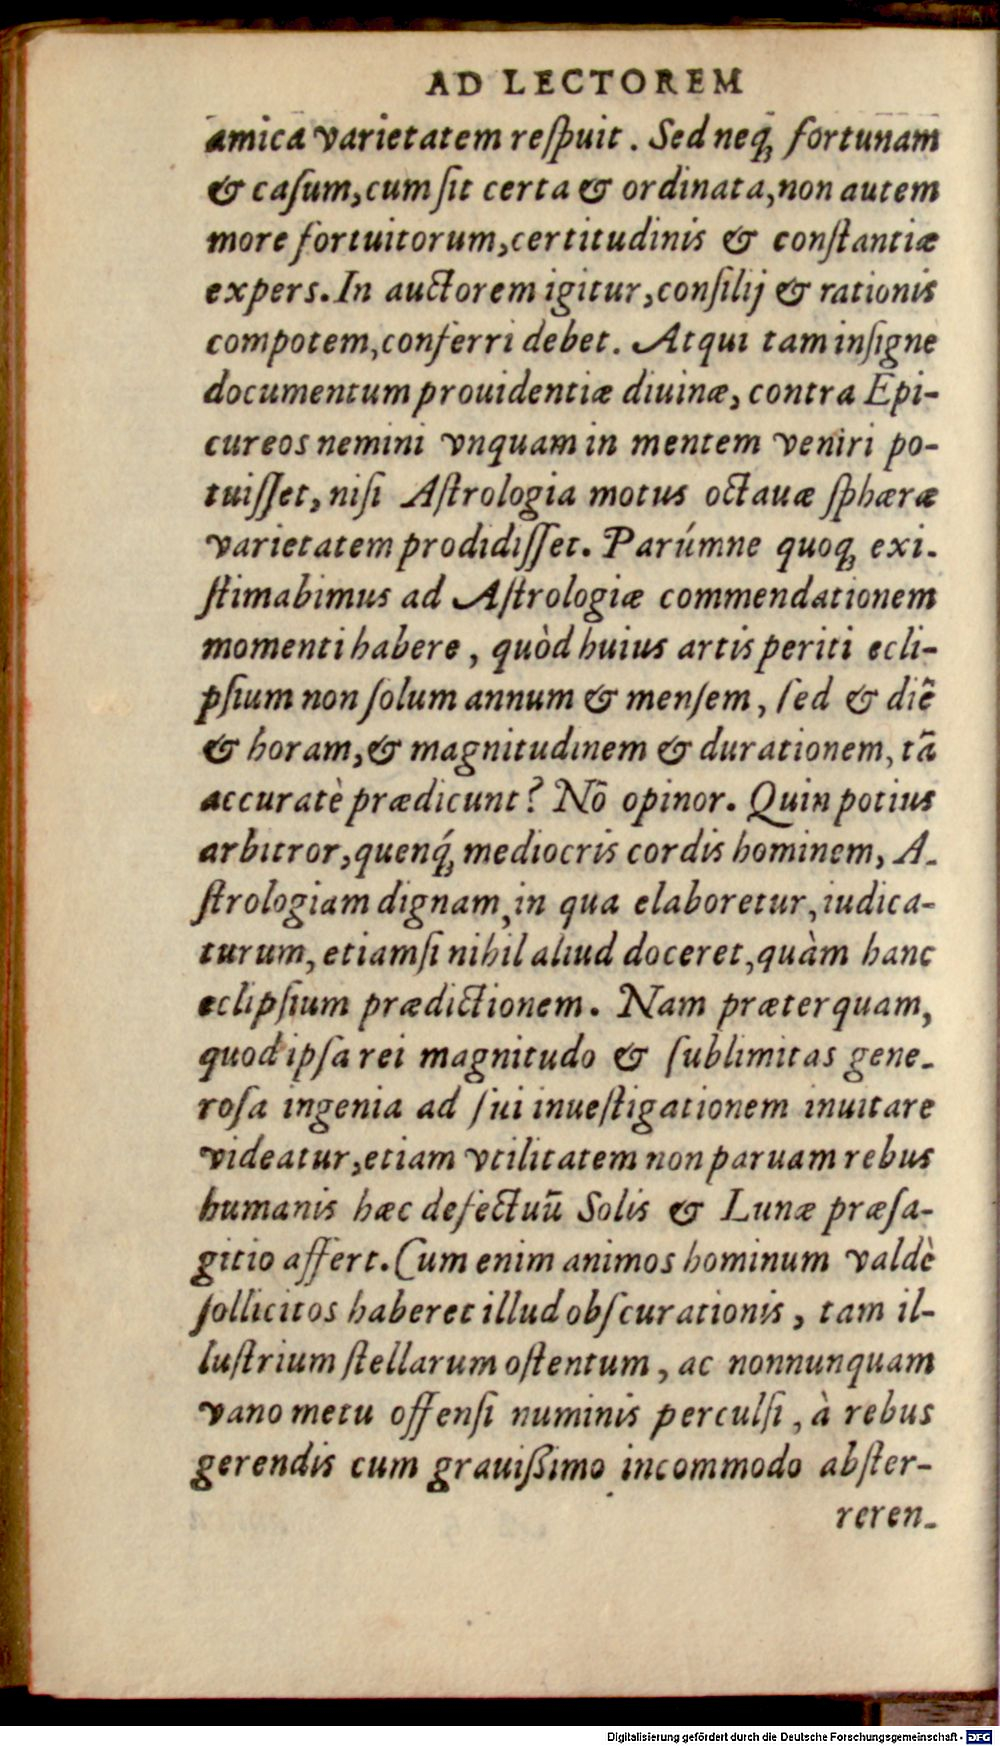 AD LECTOREM
amica varietatem reſpuit. Sed neq́ꝫ fortunam
& caſum, cum ſit certa & ordinata, non autem
more fortuitorum, certitudinis & conſtantiæ
expers. In auctorem igitur, conſilij & rationis
compotem, conferri debet. Atqui tam inſigne
documentum prouidentiæ diuinæ, contra Epi-
cureos nemini vnquam in mentem veniri po-
tuiſſet, niſi Aſtrologia motus octauæ ſphæræ
varietatem prodidiſſet. Parúmne quoqꝫ exi-
ſtimabimus ad Aſtrologiæ commendationem
momenti habere, quòd huius artis periti ecli-
pſium non ſolum annum & menſem, ſed & diẽ
& horam, & magnitudinem & durationem, tã
accuratè prædicunt? Nõ opinor. Quin potius
arbitror, quenq́ꝫ mediocris cordis hominem, A-
ſtrologiam dignam, in qua elaboretur, iudica-
turum, etiamſi nihil aliud doceret, quàm hanc
eclipſium prædictionem. Nam præterquam,
quod ipſa rei magnitudo & ſublimitas gene-
roſa ingenia ad ſui inueſtigationem inuitare
videatur, etiam vtilitatem non paruam rebus
humanis hæc defectuũ Solis & Lunæ præſa-
gitio affert. Cum enim animos hominum valdè
ſollicitos haberet illud obſcurationis, tam il-
luſtrium ſtellarum oſtentum, ac nonnunquam
vano metu offenſi numinis perculſi, à rebus
gerendis cum grauiſſimo incommodo abſter-
reren-
Digitalisierung gefördert durch die Deutsche Forschungsgemeinschaft - DFG